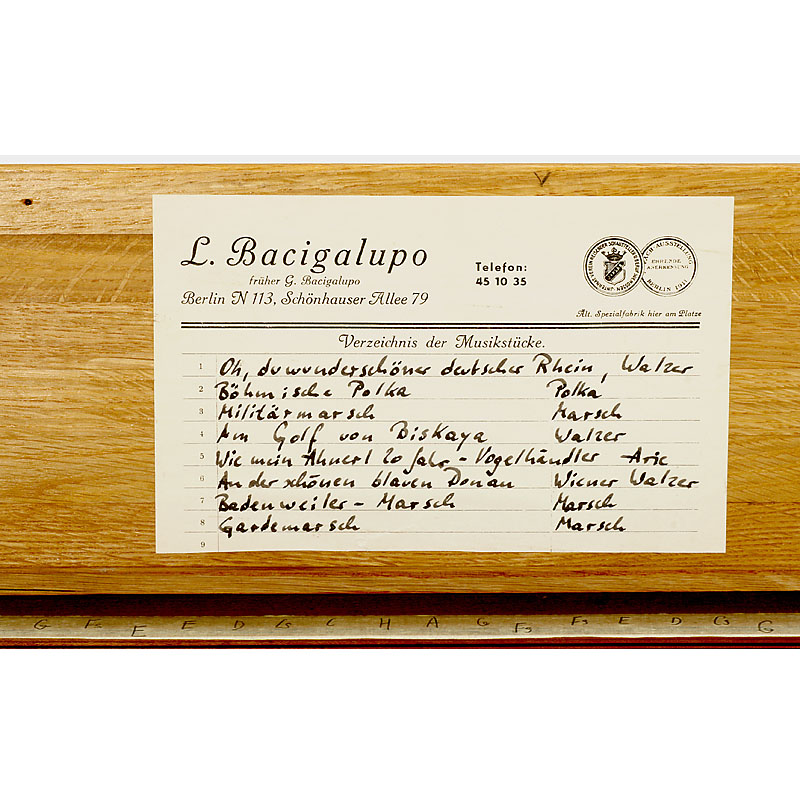 L. Bacigalupo
früher G. Bacigalupo
Berlin N 113, Schönhauser Allee 79
Telefon:
45 10 35
FACH AUSSTELLUNG
EHRENDE
ANERKENNUNG
BERLIN
Ält. Spezialfabrik hier am Platze
Verzeichnis der Musikstücke.
1 Oh, du wunderschöner deutscher Rhein, Walzer
2 Böhmische Polka Polka
3 Militärmarsch Marsch
4 Am Golf von Biskaya Walzer
5 Wie mein Ahnerl 20 Jahr - Vogelhändler - Arie
6 An der schönen blauen Donau Wiener Walzer
7 Badenweiler - Marsch Marsch
8 Gardemarsch Marsch
9
G Fs E E D Cs C H A G Fs Fs E D Cs G